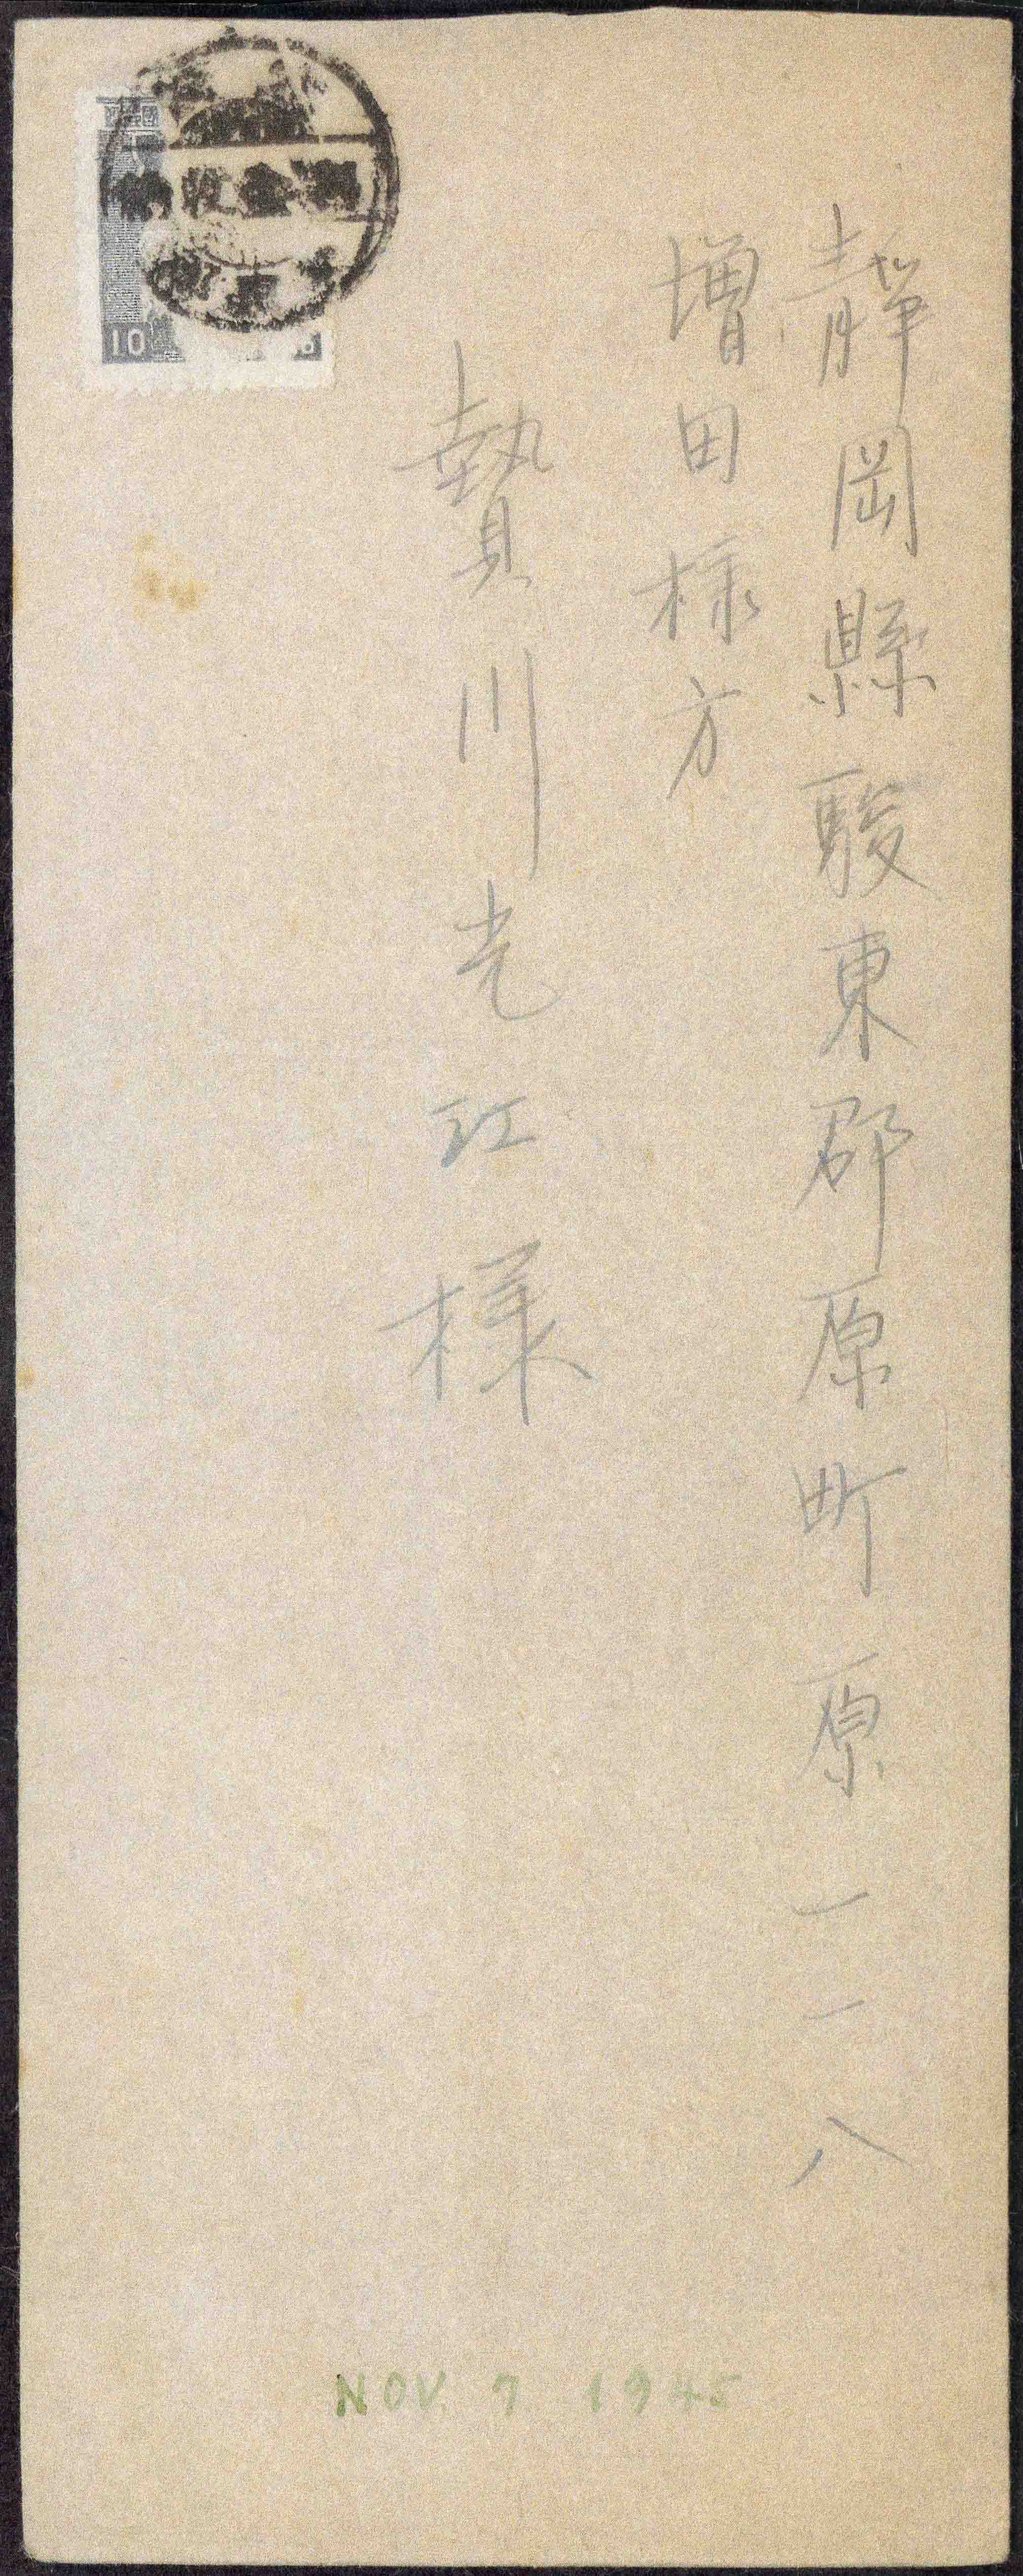 靜岡縣駿東郡原町原一一八
増田様方
贄川光江様
納收金料
10
NOV 7 1945